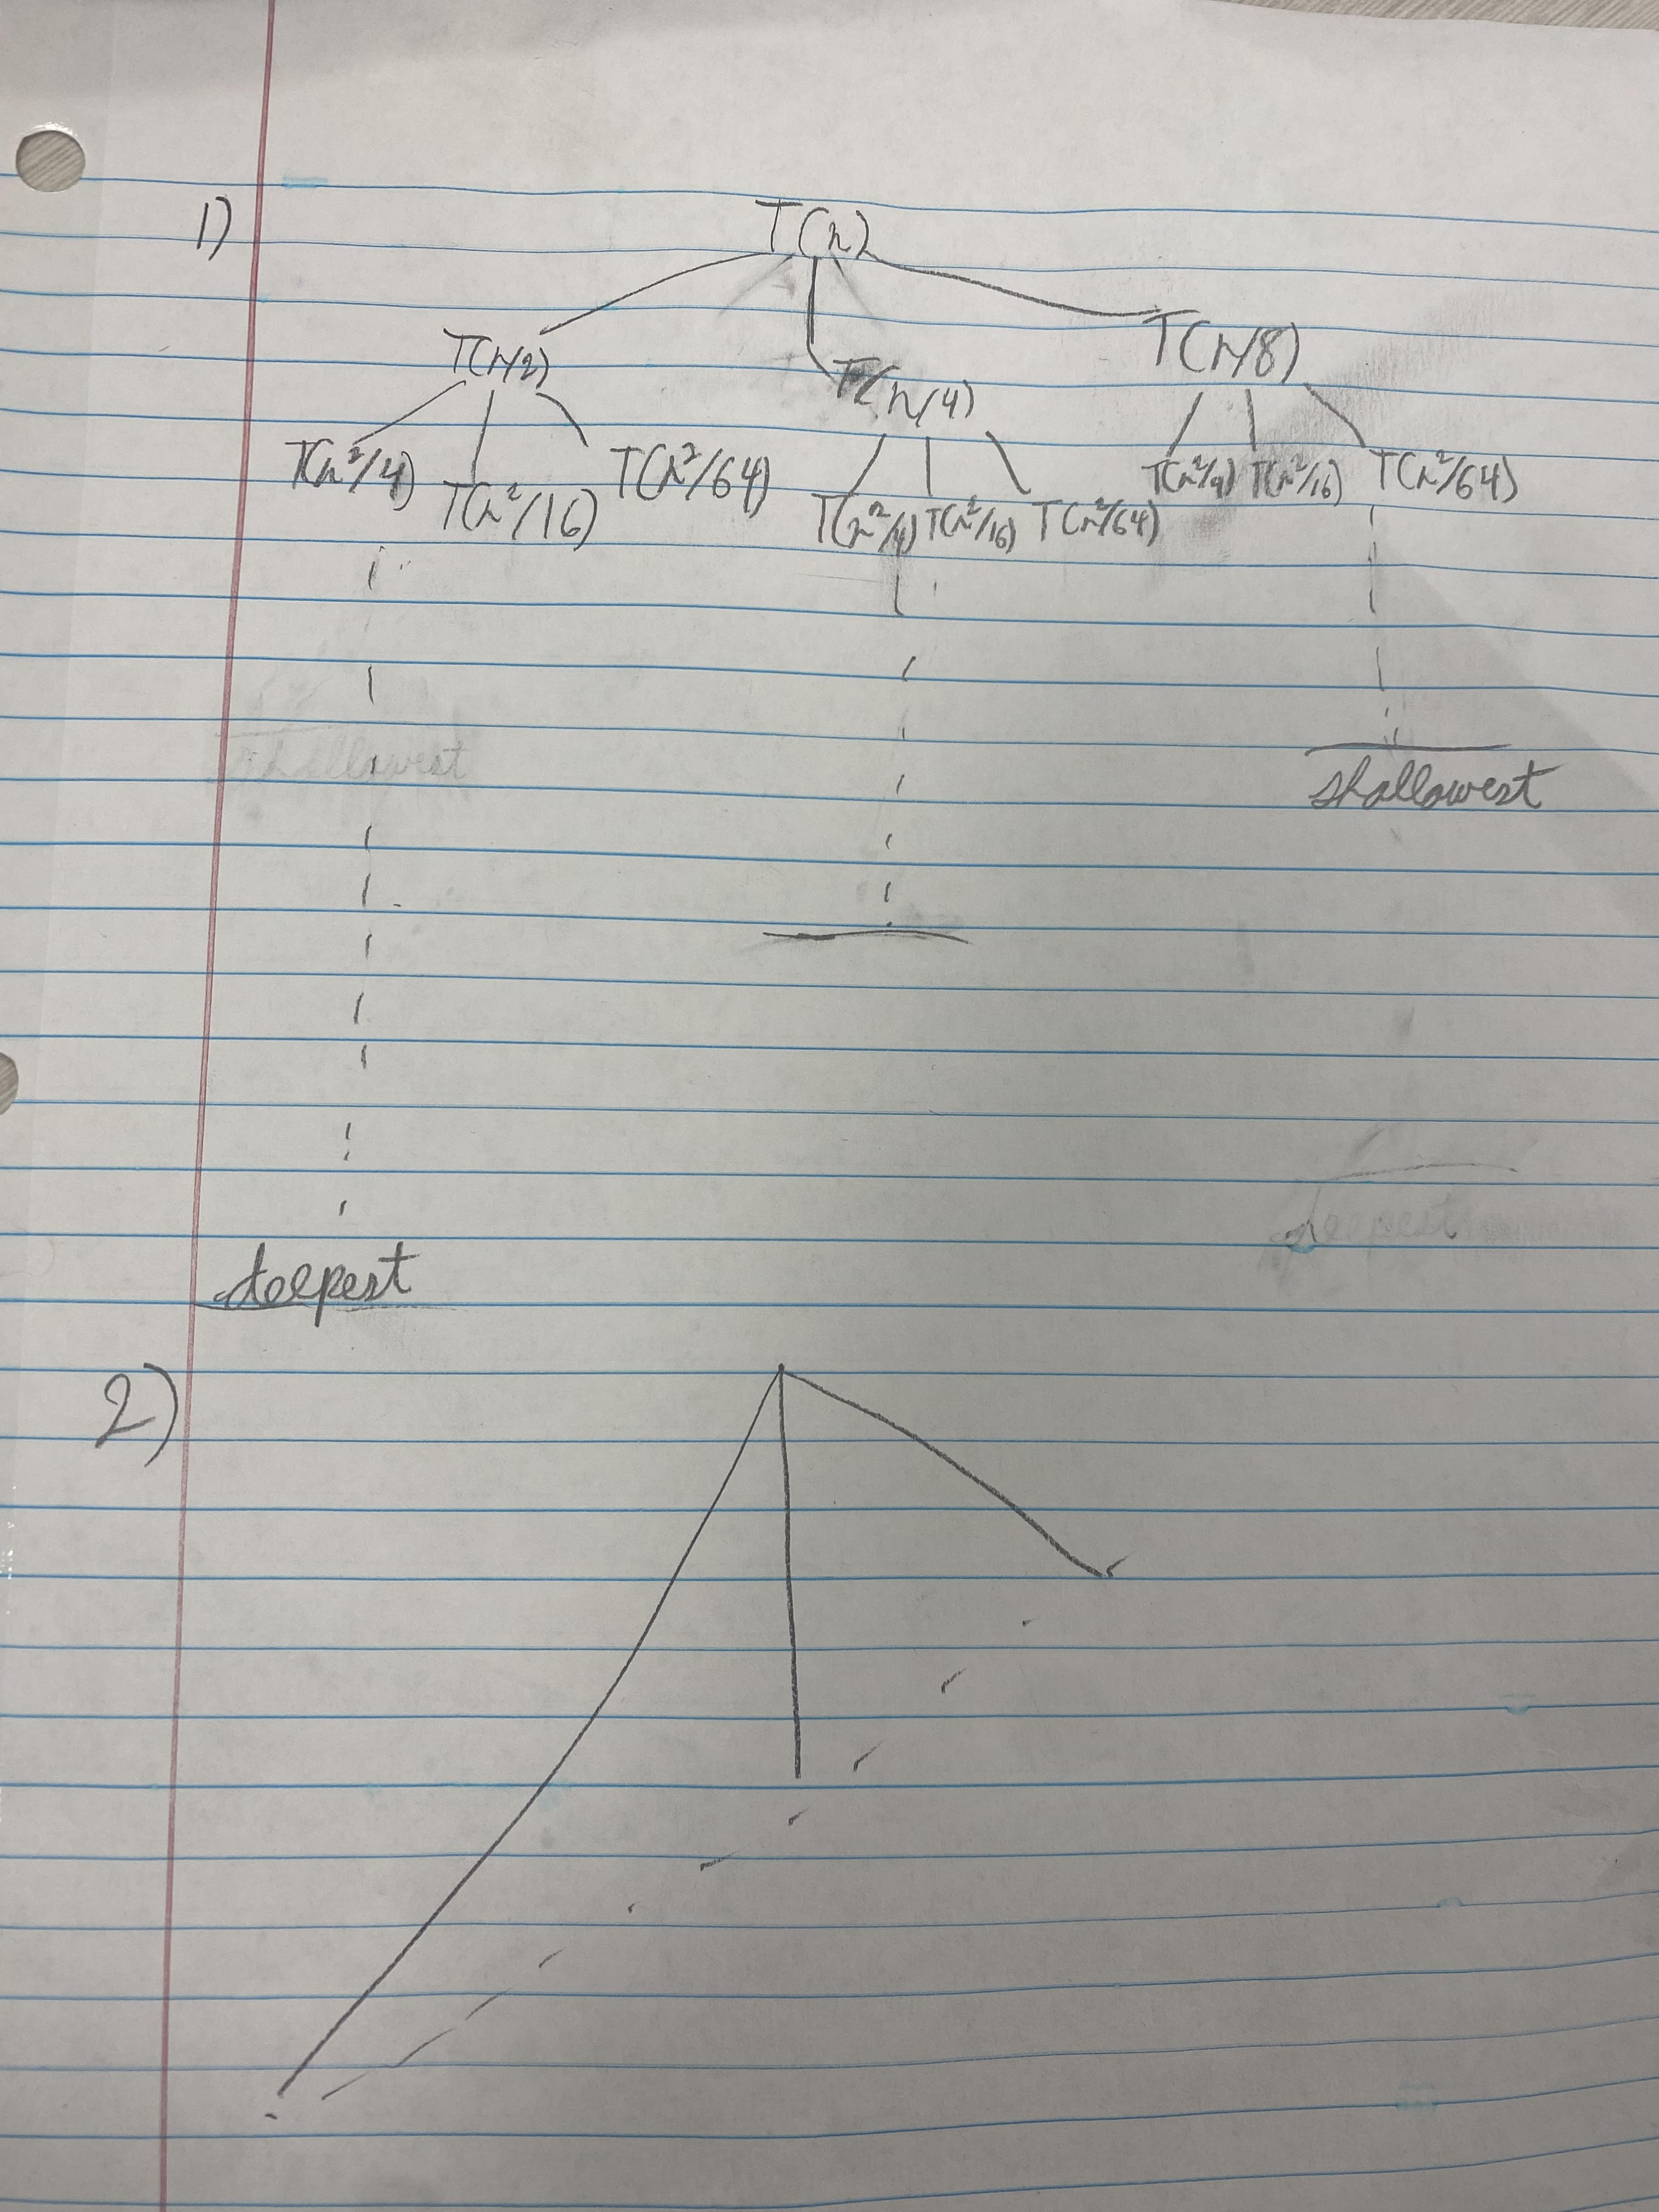 1)
T(n)
T(n/2) T(n/4) T(n/8)
T(n²/4) T(n²/16) T(n²/64) T(n²/4) T(n²/16) T(n²/64) T(n²/4) T(n²/16) T(n²/64)
shallowest
shallowest
deepest
deepest
2)